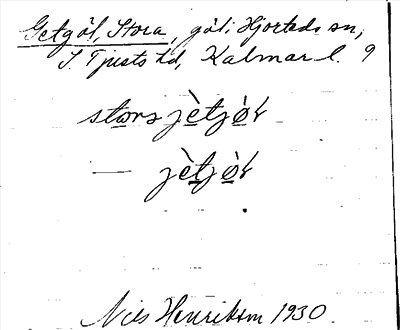 Getgöl, Stora, göl i Hjorteds sn,
S. Tjusts hd, Kalmar l. 9
stora jètjø̀l
— jètjø̀l
Nils Henrikson 1930